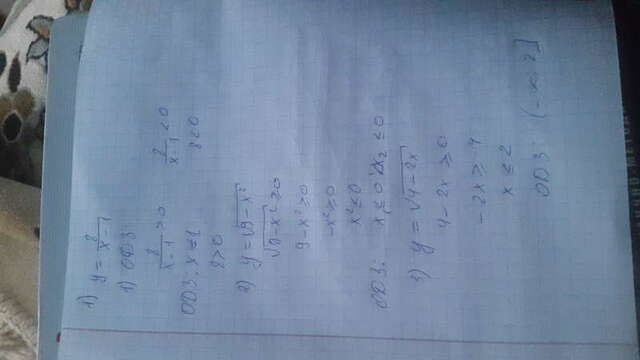 1) y = 8/(x-1)
1) ОДЗ:
8/(x-1) > 0    8/(x-1) < 0
ОДЗ: x ≠ 1    8 < 0
8 > 0
2) y = √(9-x²)
√(9-x²) ≥ 0
9-x² ≥ 0
-x² ≥ 0
x² ≤ 0
ОДЗ: x₁ ≤ 0 x₂ ≤ 0
3) y = √(4-2x)
4-2x ≥ 0
-2x ≥ -4
x ≤ 2
ОДЗ: (-∞, 2]